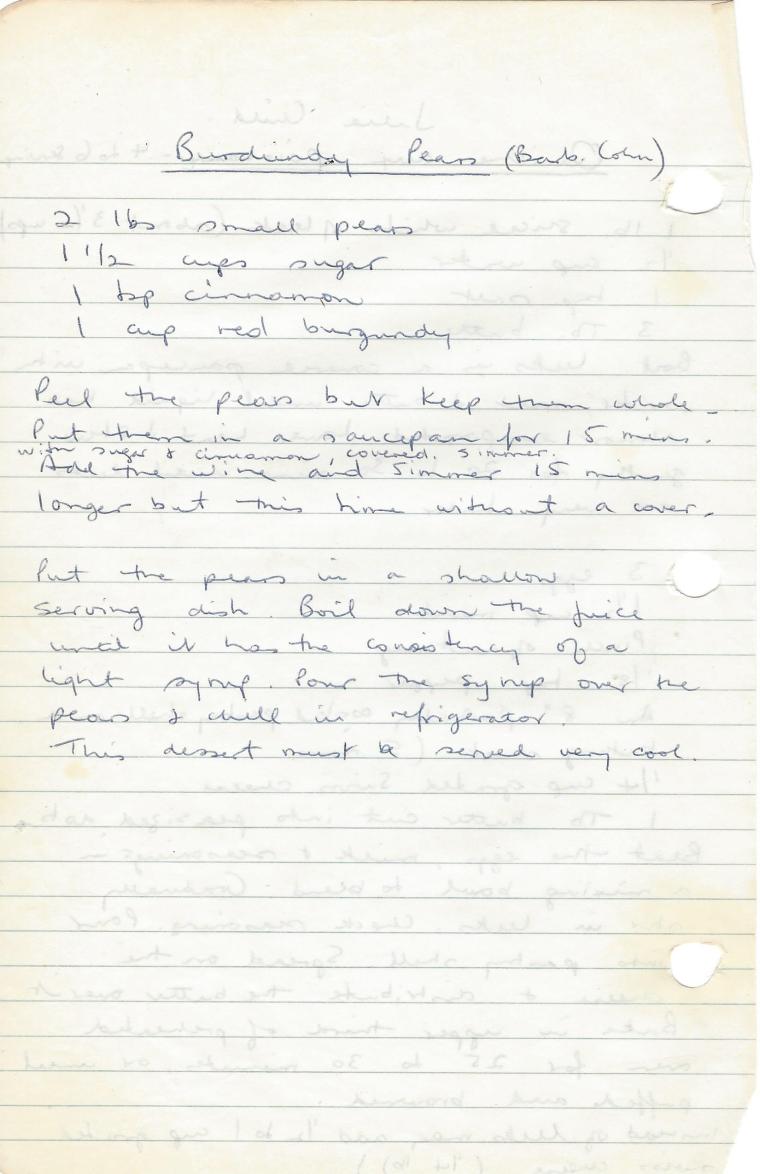 Burdundy Pears (Barb. Cohn)
2 lbs small pears
1 1/2 cups sugar
1 tsp cinnamon
1 cup red burgundy
Peel the pears but keep them whole -
Put them in a saucepan for 15 mins.
with sugar & cinnamon, covered. Simmer.
Add the wine and simmer 15 mins
longer but this time without a cover.
Put the pears in a shallow
serving dish. Boil down the juice
until it has the consistency of a
light syrup. Pour the syrup over the
pears & chill in refrigerator.
This dessert must be served very cool.